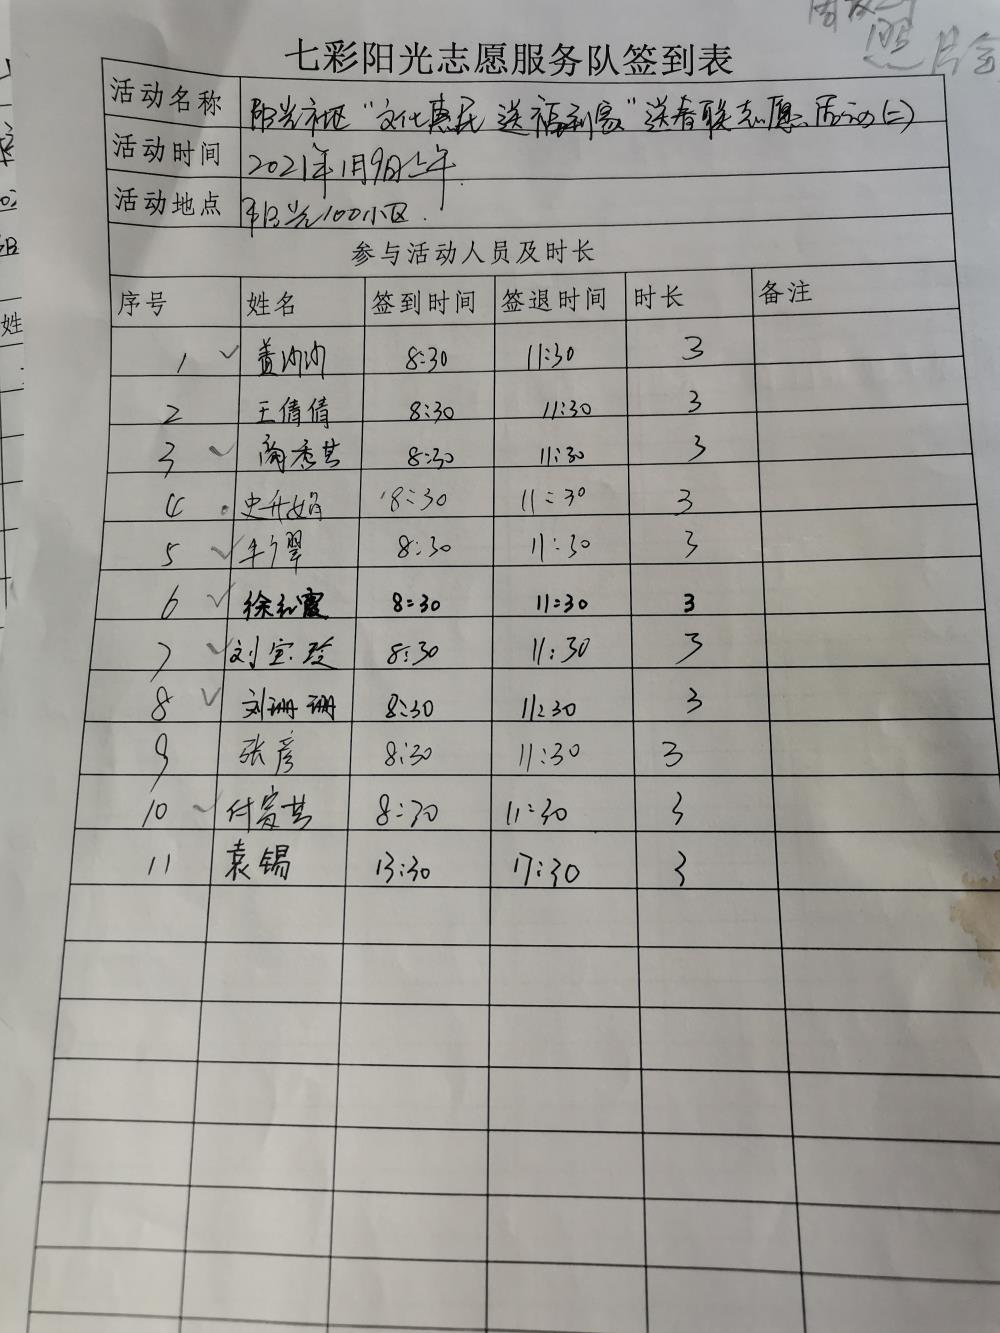 照片会
七彩阳光志愿服务队签到表
活动名称 阳光社区“文化惠民 送福到家”送春联志愿活动(二)
活动时间 2021年1月9日上午.
活动地点 阳光100小区.
参与活动人员及时长
序号 姓名 签到时间 签退时间 时长 备注
1 ✓ 黄沙沙 8:30 11:30 3
2 王倩倩 8:30 11:30 3
3 ✓ 8:30 11:30 3
4 史升娟 8:30 11:30 3
5 ✓ 8:30 11:30 3
6 ✓ 徐红霞 8:30 11:30 3
7 ✓ 刘宝玲 8:30 11:30 3
8 ✓ 刘珊珊 8:30 11:30 3
9 张彦 8:30 11:30 3
10 ✓ 付爱芸 8:30 11:30 3
11 袁锡 13:30 17:30 3
姓